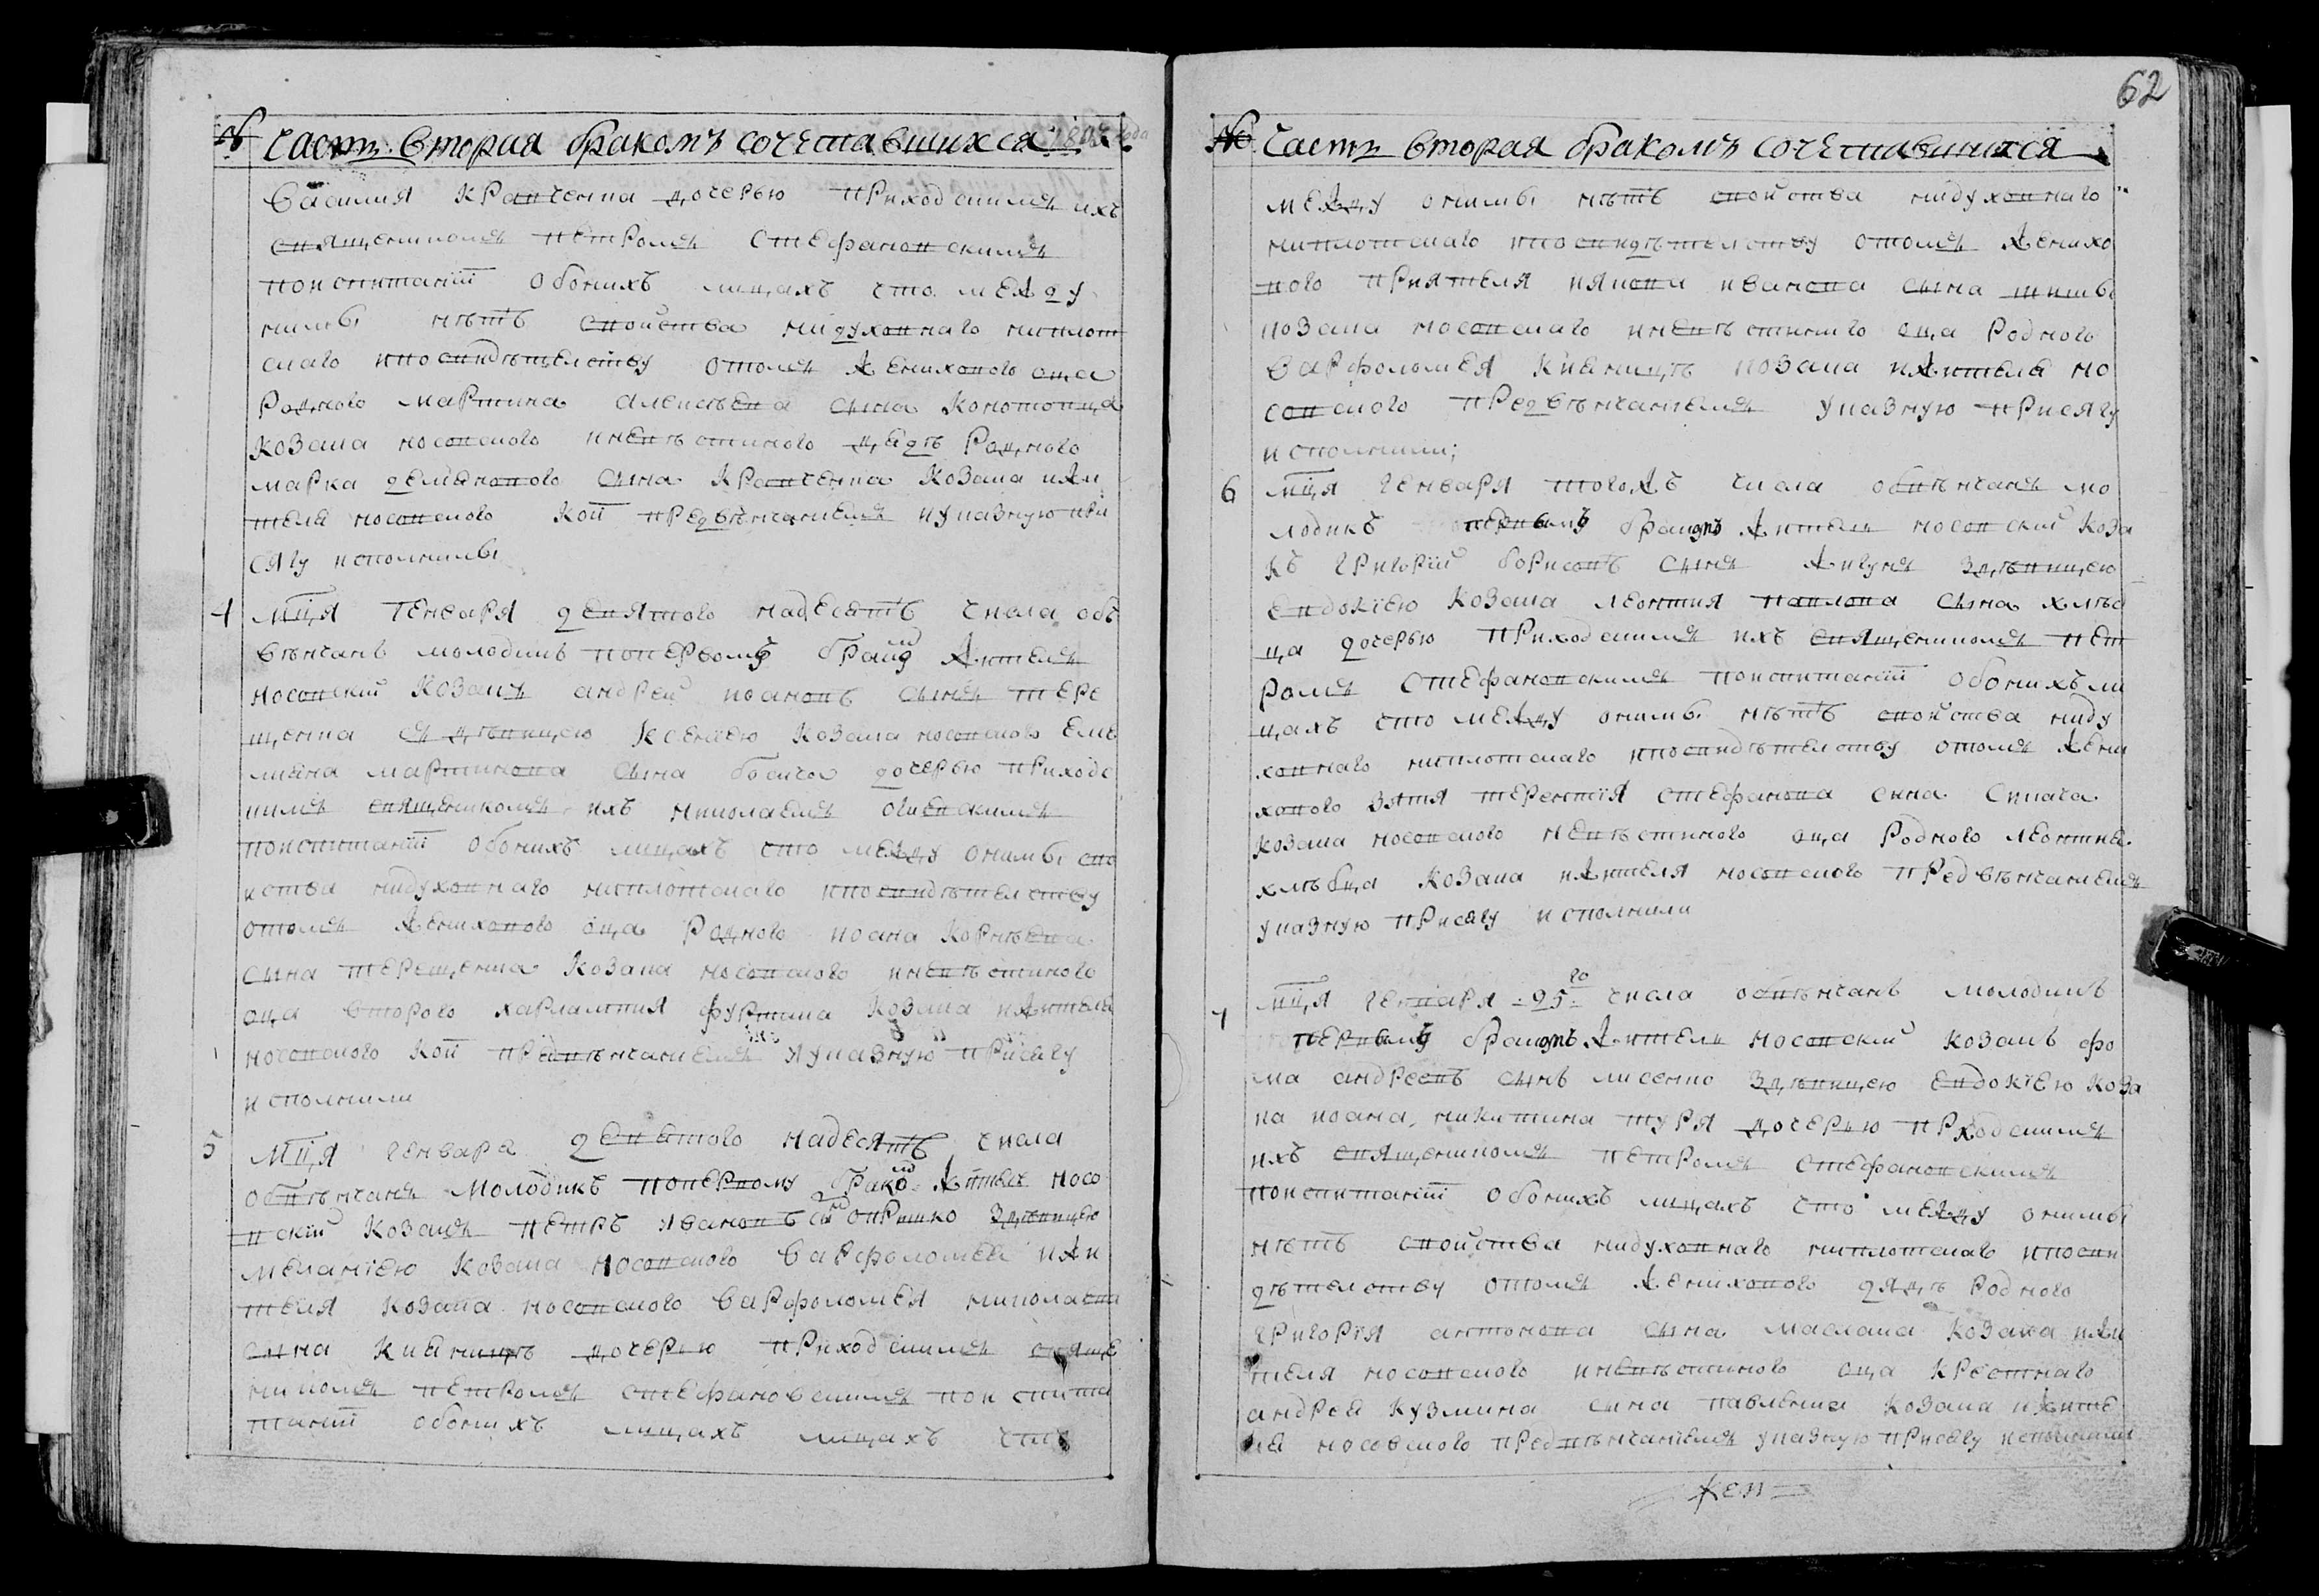 № Часть вторая бракомъ сочетавшихся 1802 года
Василия Кравченка дочерью приходскимъ ихъ
священникомъ Петромъ Стефановскимъ
повспитанїи обоихъ лицахъ что между
ними нѣтъ свойства нидуховнаго ниплот
скаго ипосвидѣтелству отомъ женихового оца
Родного Мартина Алексѣева сына Конотопца
козака носовского иневѣстиного дядѣ Родного
Марка Демянового сына Кравченка козака ижи
теля носовского кои предвѣнчаниемъ иуказную при
сягу исполнилы
4 Мця Генваря девятого надесять числа объ
вѣнчанъ молодикъ попервому браку житель
носовский козакъ Андрей Иоановъ сынъ Тере
щенка съ дѣвицею Ксениею козака носовского Еме
лияна Мартинова сына Бойка дочерью приходс
кимъ священикомъ ихъ Николаемъ Огиевскимъ
повспитанїи обоихъ лицахъ что между онимы сво
йства нидуховнаго ниплотскаго ипосвидѣтелству
отомъ женихового оца Родного Иоана Корнѣева
сына Терещенка козака носовского иневѣстиного
оца второго Харлампия Фуртика козака ижителя
носовского кои предвѣнчаниемъ иуказную присягу
исполнили
5 Мця Генвара девятого надесять числа
обвѣнчанъ молодикъ попервому браку житель носо
вский козакъ Петръ Ивановъ сынъ Опришко здѣвицею
Меланиею козака носовского Варфоломея ижи
теля козака носовского Варфоломея Николаева
сына Кияницѣ дочерью приходскимъ свяще
никомъ Петромъ Стефановскимъ повспита
танїи обоихъ лицахъ лицахъ что
62
№ Часть вторая бракомъ сочетавшихся
между онимы нѣтъ свойства нидуховнаго
ниплотскаго ипосвидѣтелству отомъ женихо
вого приятеля Иякова Иванова сына Шишы
козака носовскаго иневѣстиного оца Родного
Варфоломея Кияницѣ козака ижителя но
совского предвѣнчаниемъ указную присягу
исполнили;
6 Мця Генваря тогожъ числа обвѣнчанъ мо
лодикъ первымъ бракомъ житель носовский коза
къ Григорий Борисовъ сынъ Жигунъ здѣвицею
Евдокїею козака Леонтия Павлова сына Хлѣб
ца дочерью приходскимъ ихъ священикомъ Пет
ромъ Стефановскимъ повспитанїи обоихъ ли
цахъ что между онимы нѣтъ свойства ниду
ховнаго ниплотскаго ипосвидѣтелству отомъ жени
хового зятя Терентїя Стефанова сина Спичака
козака носовского невѣстиного оца Родного Леонтия
Хлѣбца козака ижителя носовского предвѣнчаниемъ
указную присягу исполнили
7 Мця Генваря 25го числа обвѣнчанъ молодикъ
первымъ бракомъ житель носовский козакъ Фо
ма Андреевъ сынъ Лисенко здѣвицею Евдокїею коза
ка Иоана Никитина Туря дочерью приходскимъ
ихъ священикомъ Петромъ Стефановскимъ
повспитанїи обоихъ лицахъ что между онимы
нѣтъ свойства нидуховнаго ниплотскаго ипосви
дѣтелству отомъ женихового дядѣ Родного
Григорїя Антонова сына Маслака козака ижи
теля носовского иневѣстиного оца крестнаго
Андрея Кузмина сина Павленка козака ижите
ля носовского предвѣнчаниемъ указную присягу исполнили